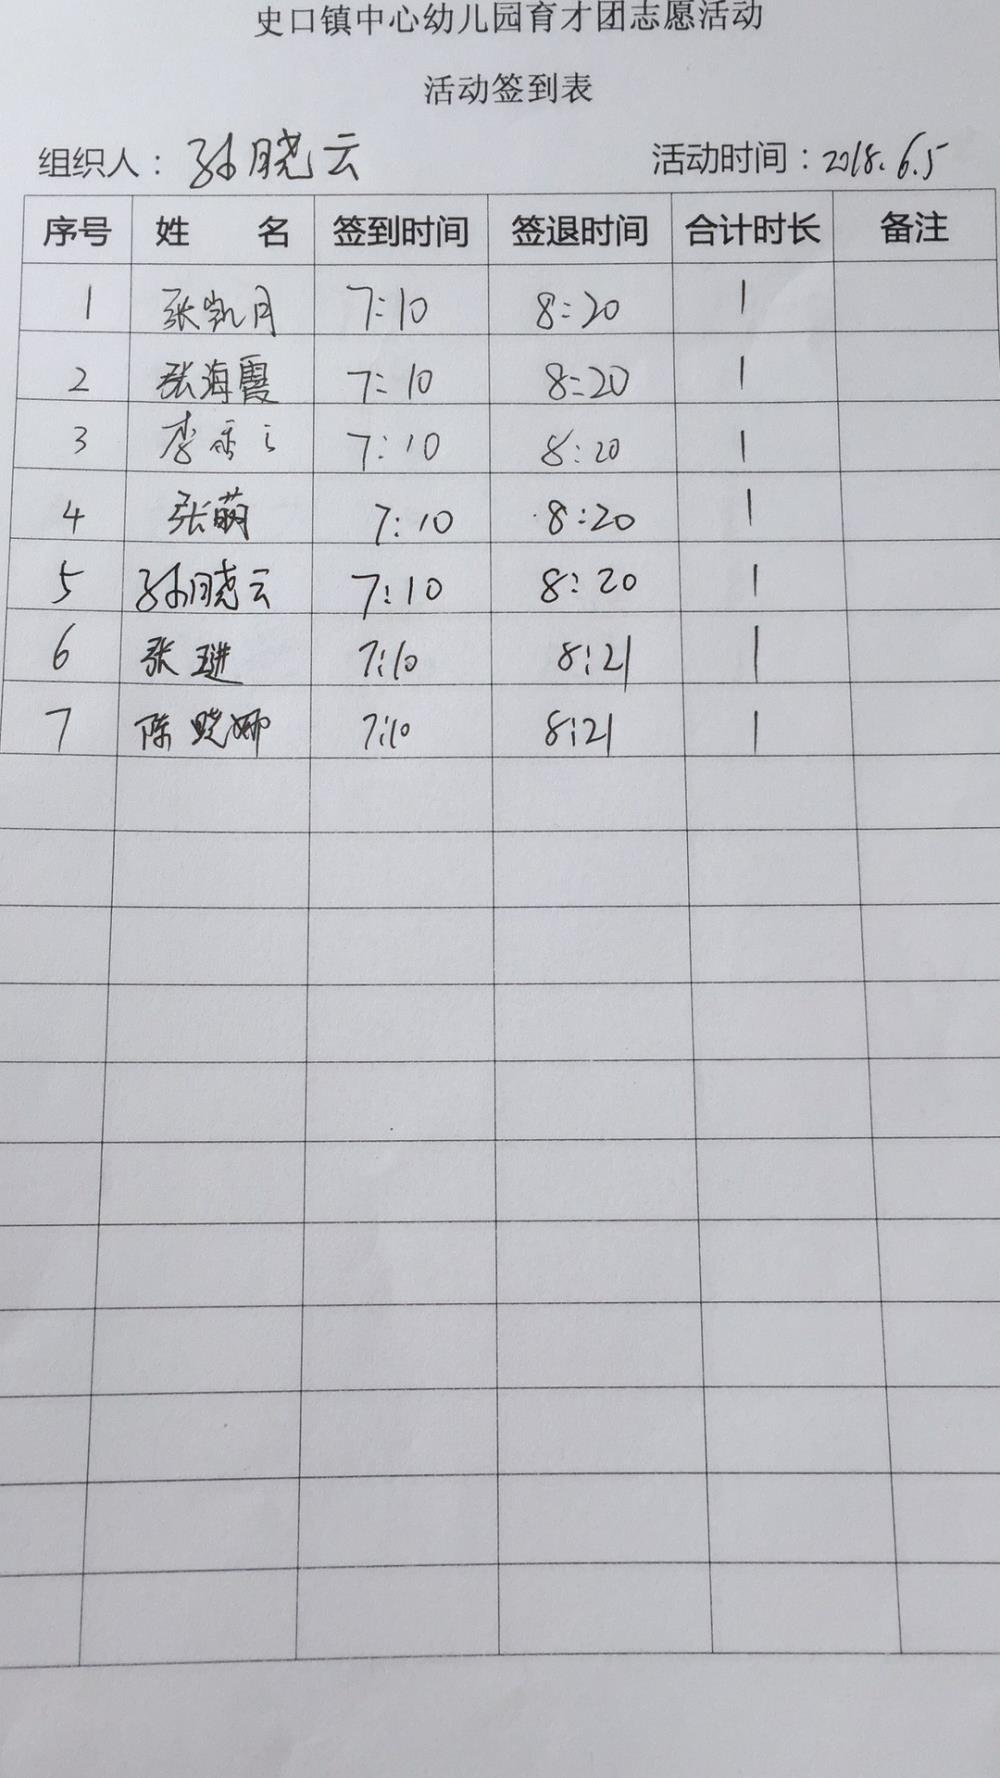 史口镇中心幼儿园育才团志愿活动
活动签到表
组织人：孙晓云 活动时间：2018.6.5
序号 姓 名 签到时间 签退时间 合计时长 备注
1 张凯月 7:10 8:20 1
2 张海霞 7:10 8:20 1
3 李 7:10 8:20 1
4 张萌 7:10 8:20 1
5 孙晓云 7:10 8:20 1
6 张琎 7:10 8:21 1
7 陈晓娜 7:10 8:21 1